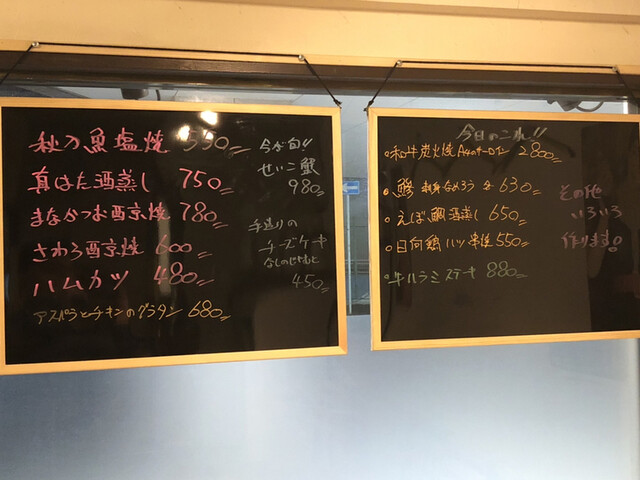 秋刀魚塩焼 550
真はた酒蒸し 750
まながつお西京焼 780
さわら西京焼 600
ハムカツ 480
アスパラとチキンのグラタン 680
今が旬!!
せいこ蟹
980
手造りの
チーズケーキ
450
今日のこれ!!
和牛炭火焼 A4サーロイン 2800
鯵 刺身 なめろう 各 630
えぼ鯛酒蒸し 650
日向鶏ハツ串焼 550
牛ハラミステーキ 880
その他
いろいろ
作ります。